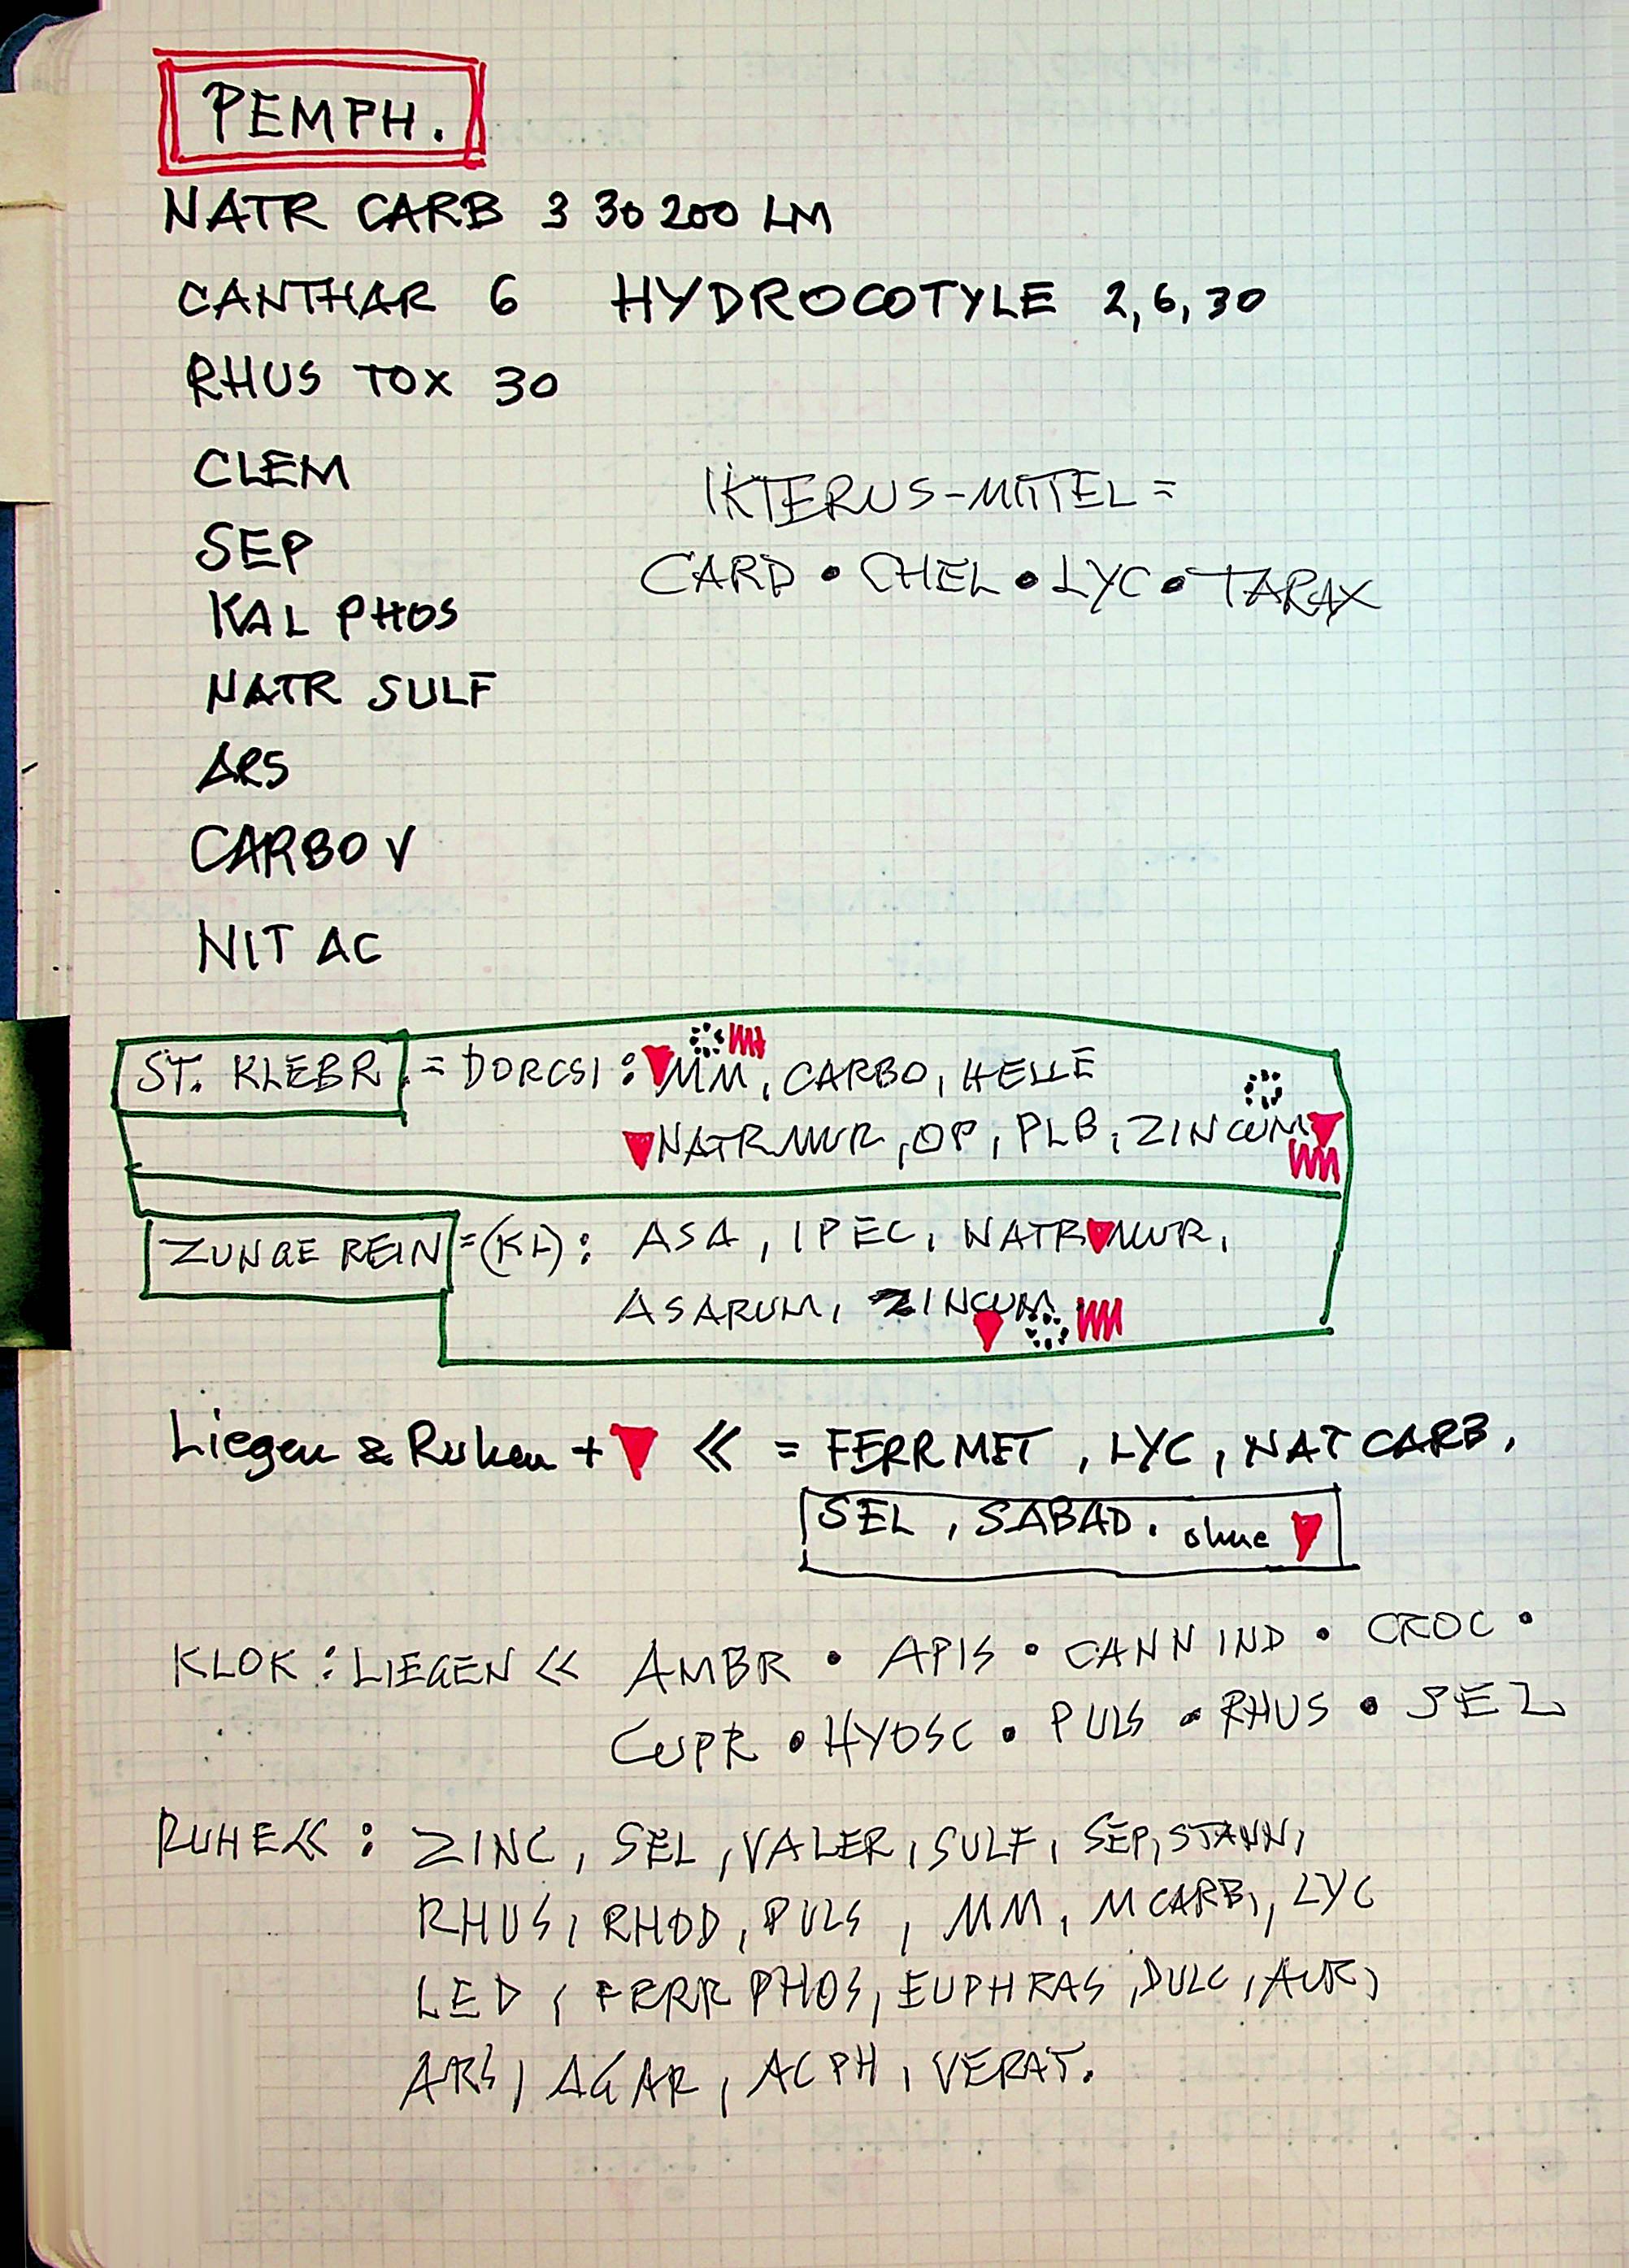 PEMPH.
NATR CARB 3 30 200 LM
CANTHAR 6 HYDROCOTYLE 2,6,30
RHUS TOX 30
CLEM
IKTERUS-MITTEL =
SEP
CARD • CHEL • LYC • TARAX
KAL PHOS
NATR SULF
ARS
CARBO V
NIT AC
ST. KLEBR. = DORCSI: MM, CARBO, HELLE
NATR MUR, OP, PLB, ZINCUM
ZUNGE REIN = (KL): ASA, IPEC, NATR MUR,
ASARUM, ZINCUM
Liegen & Ruhen + << = FERR MET, LYC, NAT CARB,
SEL, SABAD. ohne
KLOK: LIEGEN << AMBR • APIS • CANN IND • CROC •
CUPR • HYOSC • PULS • RHUS • SEL
RUHE <<: ZINC, SEL, VALER, SULF, SEP, STANN,
RHUS, RHOD, PULS, MM, M CARB, LYC
LED, FERR PHOS, EUPHRAS, DULC, AUR,
ARS, AGAR, AC PH, VERAT.